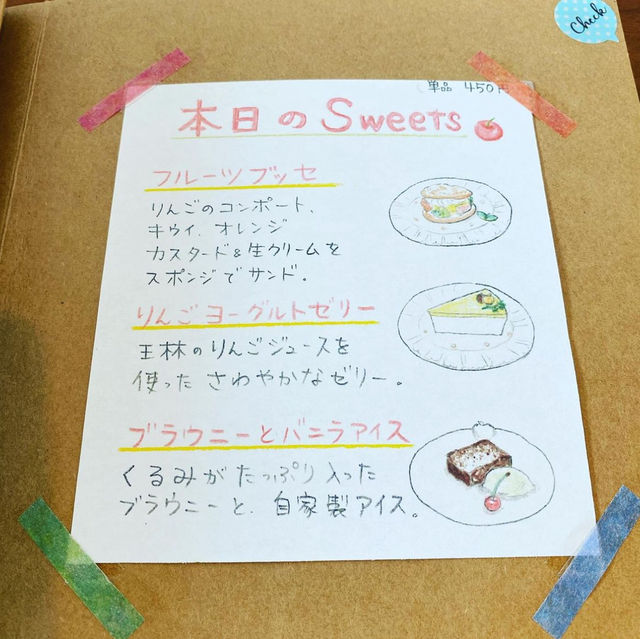 Check
単品 450円
本日のSweets
フルーツブッセ
りんごのコンポート、
キウイ、オレンジ
カスタード&生クリームを
スポンジでサンド。
りんごヨーグルトゼリー
王林のりんごジュースを
使った さわやかなゼリー。
ブラウニーとバニラアイス
くるみがたっぷり入った
ブラウニーと、自家製アイス。